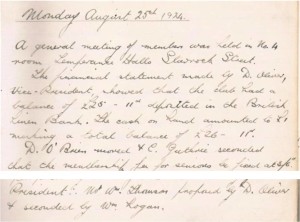 Monday August 25th 1924.
A general meeting of members was held in No 4
room Temperance Halls Sturrock Street.
The financial statement made by D. Oliver,
Vice-President, showed that the club had a
balance of £25 - 11s deposited in the British
Linen Bank. The cash on hand amounted to £1
making a total balance of £26 - 11s.
D. O'Brien moved & C. Guthrie seconded
that the membership fee for seniors be fixed at
President : Mr Wm. Thomson proposed by D. Oliver
& seconded by Wm Logan.